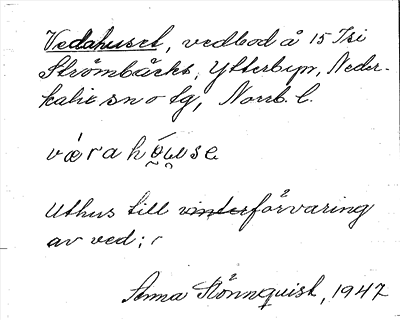 Vedahuset, vedbod å 15 Isi
Strömbäcks, Ytterbyn, Neder-
kalix sn o tg, Norrb. l.
væ̀rahǿu̯se
Uthus till vinterförvaring
av ved;
Anna Rönnquist, 1947